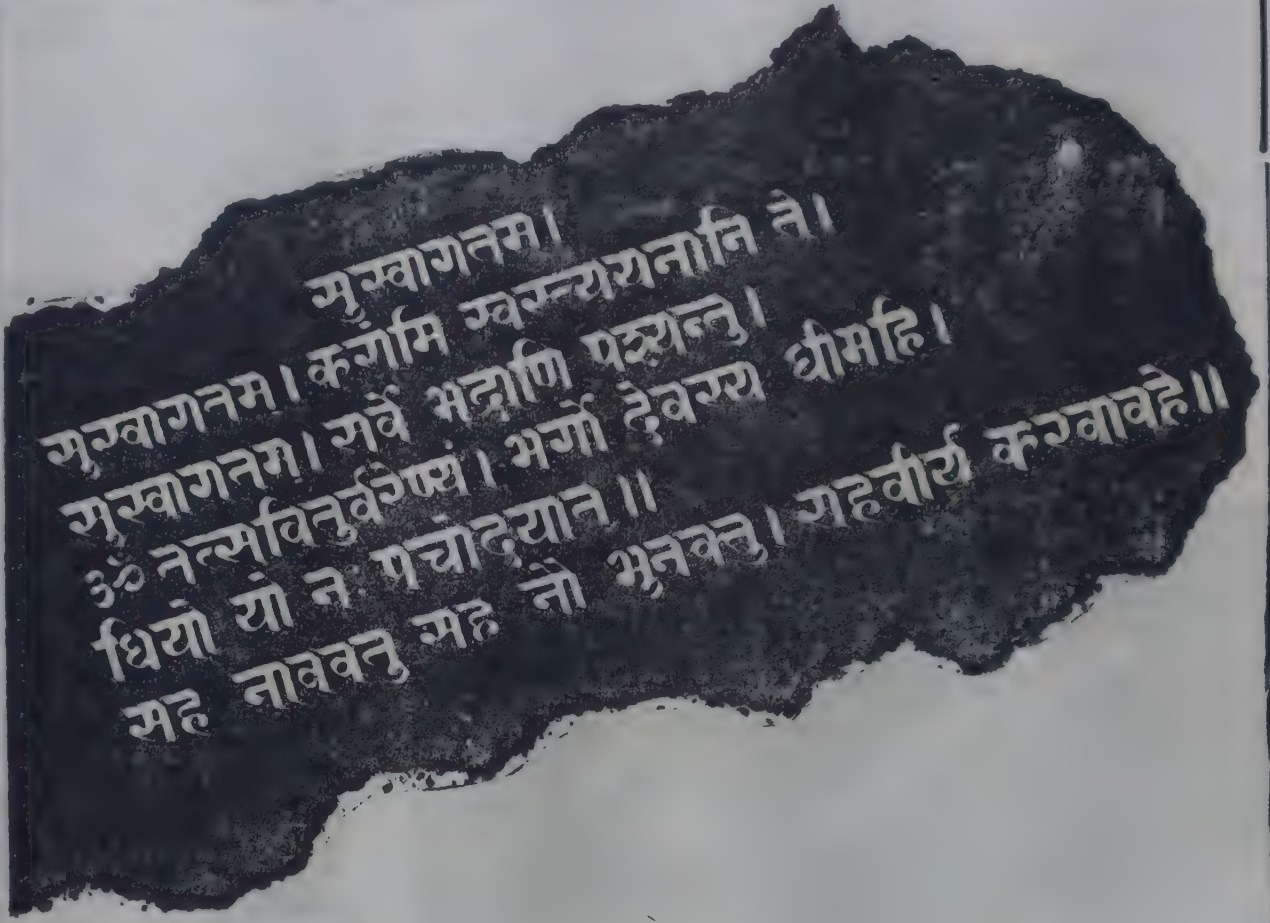 सुस्वागतम।
सुस्वागतम्। करोमि स्वस्त्ययनानि ते।
सुस्वागतम्। सर्वे भद्राणि पश्यन्तु।
ॐ तत्सवितुर्वरेण्यं। भर्गो देवस्य धीमहि।
धियो यो नः प्रचोदयात ॥
सह नाववतु सह नौ भुनक्तु। सहवीर्य करवावहे॥